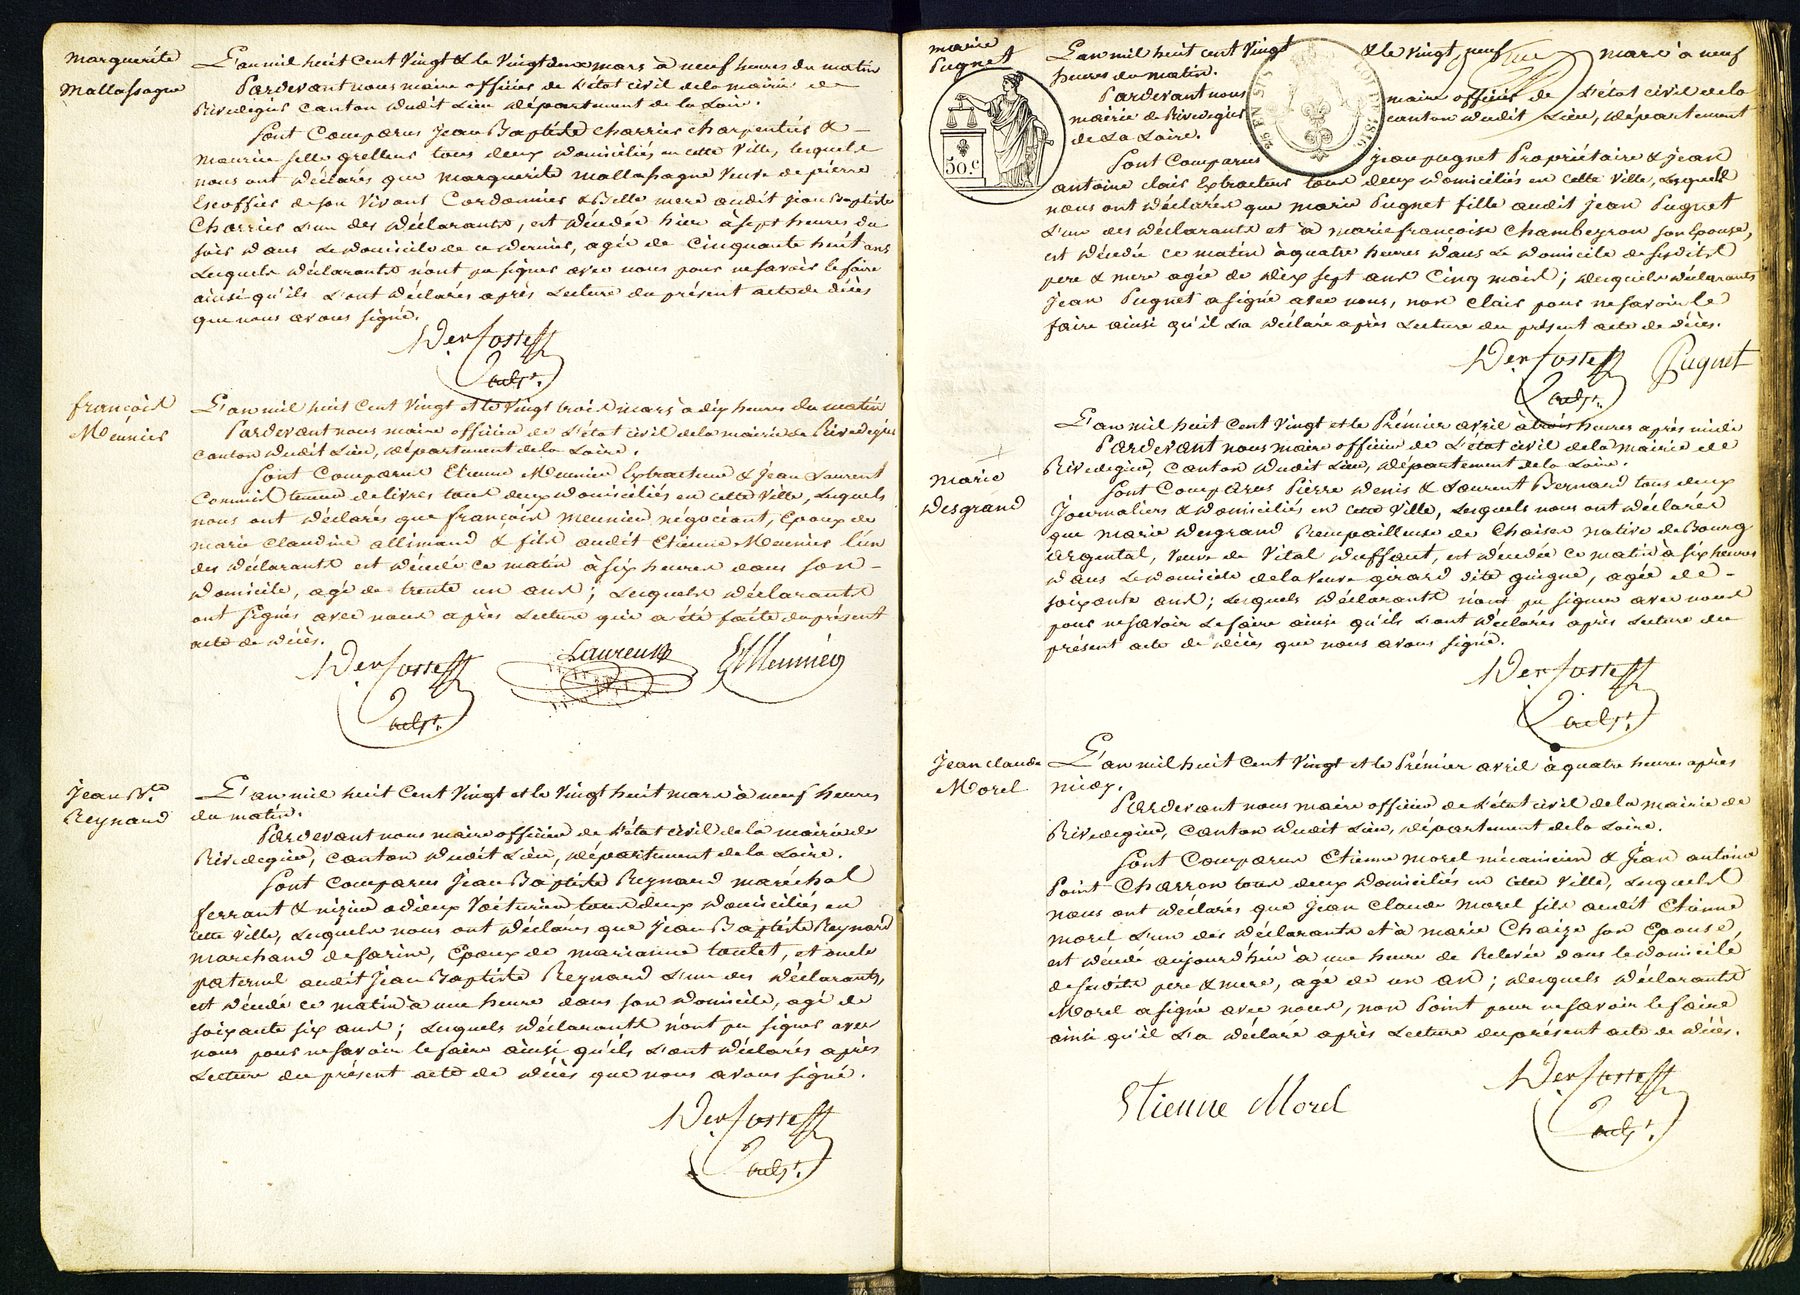 Marguerite
Mallassagne
L'an mil huit Cent Vingt & le Vingt deux mars à neuf heures du matin
Pardevant nous maire officier de L'état civil de la mairie de
Rivedegier Canton dudit Lieu département de la Loire.
Sont Comparus Jean Baptiste Charrier Charpentier &
maurice selle grellens tous deux domiciliés en cette Ville, lesquels
nous ont déclarés que marguerite mallassagne Veuve de piérre
Escoffier de son Vivant Cordonnier & Belle mere audit jean Baptiste
Charrier l'un des déclarants, est décédée hier à sept heures du
soir dans Le domicile de ce dernier, agée de Cinquante huit ans
Lesquels déclarants n'ont pu signer avec nous pour ne savoir le faire
ainsi qu'ils L'ont déclarés après Lecture du présent acte de décès
que nous avons signé.
françois
Meunier
L'an mil huit Cent Vingt et le Vingt trois mars à dix heures du matin
Pardevant nous maire officier de L'état civil de la mairie de Rivedegier
Canton dudit Lieu, département de la Loire.
Sont Comparus Etienne Meunier Extracteur & Jean Laurent
Commis teneur de livres tous deux domiciliés en cette Ville, Lesquels
nous ont déclarés que françois meunier négociant, Epoux de
marie Claudine allimand & fils audit Etienne Meunier l'un
des déclarants est décédé ce matin à six heures dans son
domicile, agé de trente un ans; Lesquels déclarants
ont signés avec nous après Lecture qui a été faite du présent
acte de décès.
Laurent
Meunier
Jean Bte
Reynaud
L'an mil huit Cent Vingt et le Vingt huit mars à neuf heures
du matin.
Pardevant nous maire officier de L'état civil de la mairie de
Rivedegier, Canton dudit Lieu, département de la Loire.
Sont Comparus Jean Baptiste Reynaud maréchal
ferrant & nizier adieux Voiturier tous deux domiciliés en
cette Ville, Lesquels nous ont déclarés que Jean Baptiste Reynaud
marchand de farine, Epoux de marianne toulet, et oncle
paternel audit Jean Baptiste Reynaud L'un des déclarants,
est décédé ce matin à une heure dans son domicile, agé de
soixante six ans; Lesquels déclarants n'ont pu signer avec
nous pour ne savoir le faire ainsi qu'ils L'ont déclarés après
Lecture du présent acte de décès que nous avons signé.
marie
Pugnet
50.c
L'an mil huit cent Vingt & le Vingt neuf mars à neuf
heures du matin.
Pardevant nous maire officier de L'état civil de la
mairie de Rivedegier canton dudit Lieu, département
de La Loire.
Sont Comparus jean pugnet Propriétaire & jean
antoine clair Extracteurs tous deux domiciliés en cette Ville, Lesquels
nous ont déclarés que marie Pugnet fille audit jean Pugnet
L'un des déclarants et à marie françoise Chambeyron son Epouse,
est décédée ce matin à quatre heures dans Le domicile de susdits
pere & mere agée de dix sept ans Cinq mois; desquels déclarants
Jean Pugnet a signé avec nous, non clair pour ne savoir le
faire ainsi qu'il L'a déclaré après Lecture du présent acte de décès.
Pugnet
marie
Desgrand
L'an mil huit Cent Vingt et le Prémier avril à trois heures après midi
Pardevant nous maire officier de L'état civil de la Mairie de
Rivedegier, Canton dudit Lieu, département de la Loire.
Sont Comparus Pierre denis & Laurent Bernard tous deux
Journaliers & domiciliés en cette Ville, Lesquels nous ont déclarés
que marie desgrand Rempailleuse de Chaise native de Bourg
argental, Veuve de Vital duffaut, est décédée ce matin à six heures
dans Le domicile de la Veuve girard dite guigne, agée de
soixante ans; Lesquels déclarants n'ont pu signer avec nous
pour ne savoir Le faire ainsi qu'ils L'ont déclarés après Lecture du
présent acte de décès que nous avons signé.
Jean Claude
Morel
L'an mil huit Cent Vingt et le Prémier avril à quatre heures après
midy.
Pardevant nous maire officier de L'état civil de la mairie de
Rivedegier, Canton dudit Lieu, département de la Loire.
Sont Comparus Etienne morel mécanicien & Jean antoine
Point Charron tous deux domiciliés en cette Ville, Lesquels
nous ont déclarés que Jean Claude Morel fils audit Etienne
morel L'un des déclarants et à Marie Chaize son Epouse,
est décédé aujourd'hui à une heure de Relevée dans le domicile
de susdits pere & mere, agé de un an; desquels déclarants
Morel a signé avec nous, non Point pour ne savoir le faire
ainsi qu'il L'a déclaré après Lecture du présent acte de décès.
Etienne Morel